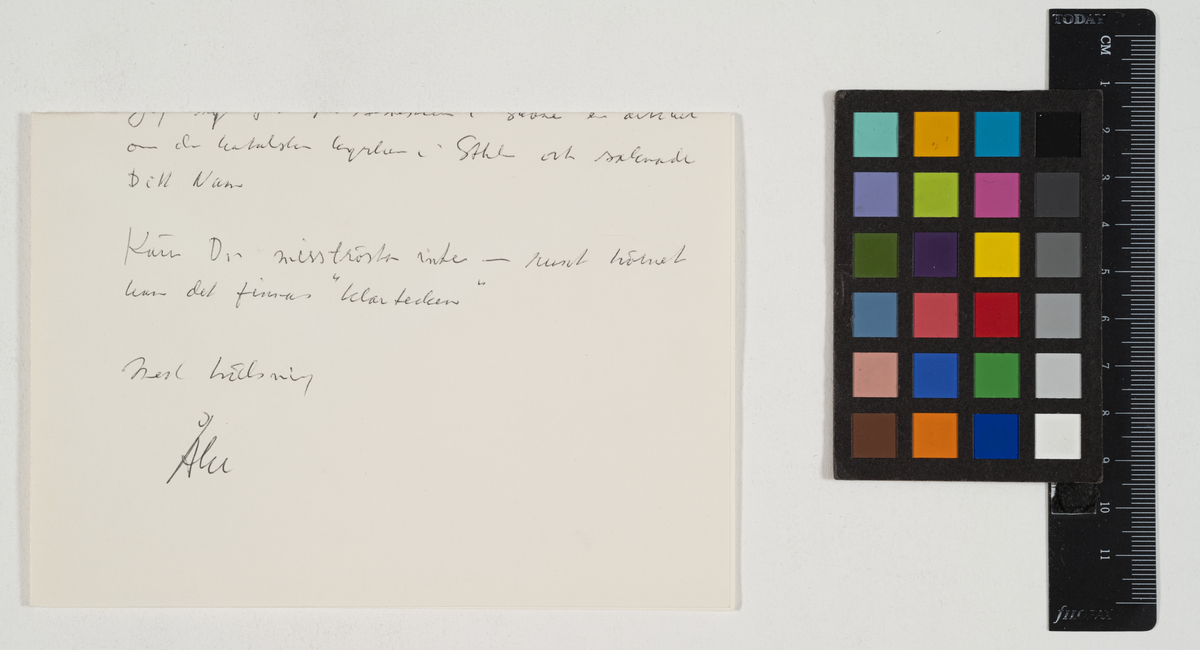 om de katalska lägren i Sthlm och saknade
Ditt Namn
Kära Du misströsta inte — runt hörnet
kan det finnas "klartecken"
Med hälsning
Åke
TODAY
CM
1
2
3
4
5
6
7
8
9
10
11